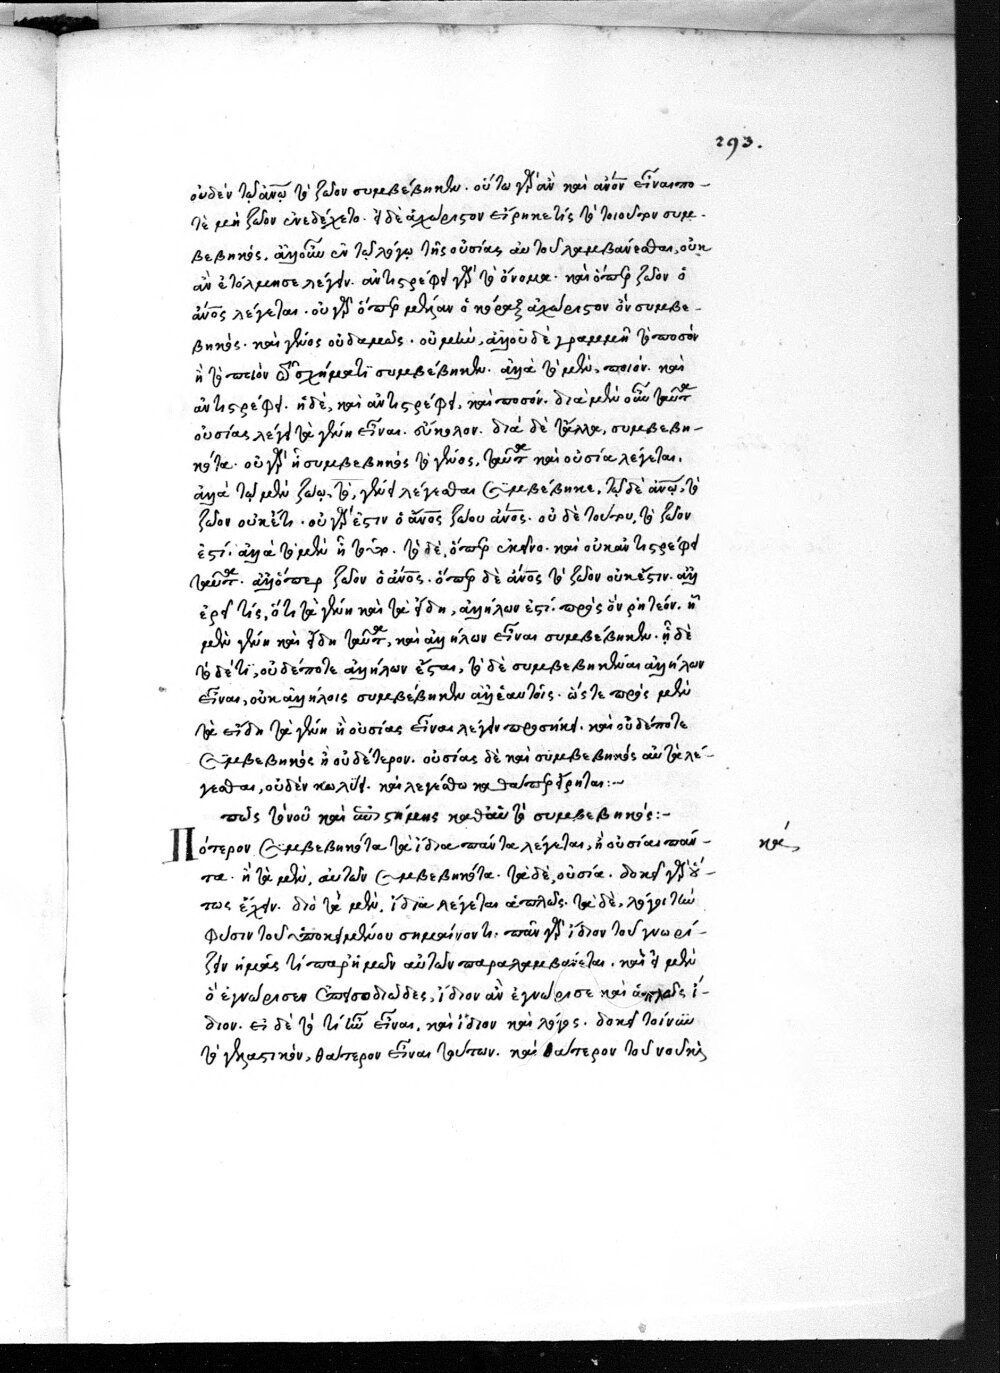 293.
οὐδὲν τῷ ἀνω̅ τὸ ζῶον συμβέβηκεν. οὕτω γὰρ ἂν καὶ ἄνον εἶναι πο-
τὲ μὴ ζῶον ἐνεδέχετο. εἰ δὲ ἀχώριστον εἴρηκέ τις τὸ τοιοῦτον συμ-
βεβηκός, ἀλλ' οὖν ἐν τῷ λόγῳ τῆς οὐσίας αὐτοῦ λαμβάνεσθαι, οὐκ
ἂν ἐτόλμησε λέγειν. ἀντιστρέφει γὰρ τὸ ὄνομα. καὶ ὅπερ ζῶον ὁ
ἄνος λέγεται. οὐ γὰρ ὅπερ μέλαν ὁ κόραξ ἀχώριστον ὂν συμβε-
βηκός. καὶ γένος οὐδαμῶς. οὐ μὴν, ἀλλ' οὐδὲ γραμμῇ τὸ ποσὸν
ἢ τὸ ποιὸν τῷ σχήματι συμβέβηκεν. ἀλλὰ τὸ μὲν, ποιόν. καὶ
ἀντιστρέφει. ἡ δὲ, καὶ ἀντιστρέφει, καὶ ποσόν. διὰ μὲν οὖν ταῦτα
οὐσίας λέγει τὰ γένη εἶναι. σύνολον. διὰ δὲ τἄλλα, συμβεβη-
κότα. οὐ γὰρ ᾗ συμβεβηκὸς τὸ γένος, ταύτῃ καὶ οὐσία λέγεται.
ἀλλὰ τῷ μὲν ζώῳ, τὸ, γένει λέγεσθαι συμβέβηκε, τῷ δὲ ἀνω̅, τὸ
ζῶον οὐκέτι. οὐ γάρ ἐστιν ὁ ἄνος ζώου ἄνος. οὐδὲ τούτου, τὸ ζῶον
ἐστί. ἀλλὰ τὸ μὲν ᾗ τόδε. τὸ δὲ, ὅπερ ἐκεῖνο. καὶ οὐκ ἀντιστρέφει
ταῦτα. ἀλλ' ὅπερ ζῶον ὁ ἄνος. ὅπερ δὲ ἄνος τὸ ζῶον οὐκ ἔστιν. ἀλλ'
ἐρεῖ τις, ὅτι τὰ γένη καὶ τὰ εἴδη, ἀλλήλων ἐστί. πρὸς ὃν ῥητέον. ᾗ
μὲν γένη καὶ εἴδη ταῦτα, καὶ ἀλλήλων εἶναι συμβέβηκεν. ᾗ δὲ
τὸ δέ τι, οὐδέποτε ἀλλήλων ἔσται, τὸ δὲ συμβεβηκέναι ἀλλήλων
εἶναι, οὐκ ἀλλήλοις συμβέβηκεν ἀλλ' ἑαυτοῖς. ὥστε πρὸς μὲν
τὰ εἴδη τὰ γένη ἢ οὐσίας εἶναι λέγειν προσήκει. καὶ οὐδέποτε
συμβεβηκὸς ἢ οὐδέτερον. οὐσίας δὲ καὶ συμβεβηκὸς αὐτὰ λέ-
γεσθαι, οὐδὲν κωλύει. καὶ λεγέσθω καθάπερ εἴρηται:~
πῶς τὸ νοῦ καὶ ἐπιστήμης καθ' αὑτὸ συμβεβηκός:~
Πότερον συμβεβηκότα τὰ ἴδια πάντα λέγεται, ἢ οὐσίαι πάν-
τα. ἢ τὰ μὲν, αὐτῶν συμβεβηκότα. τὰ δὲ, οὐσία. δοκεῖ γὰρ οὕ-
τως ἔχειν. διὸ τὰ μὲν, ἴδια λέγεται ἁπλῶς. τὰ δὲ, λόγοι τὴν
φύσιν τοῦ ὑποκειμένου σημαίνοντι. πᾶν γὰρ ἴδιον τοῦ γνωρί-
ζειν ἡμᾶς τί παρ' ἡμῶν αὐτῶν παραλαμβάνεται. καὶ εἰ μὲν
ὃ ἐγνώρισεν ἐπεισοδιῶδες, ἴδιον ἂν ἐγνώρισε καὶ ἁπλῶς ἴ-
διον. εἰ δὲ τὸ τί ἦν εἶναι, καὶ ἴδιον καὶ λόγος. δοκεῖ τοίνυν
τὸ γελαστικὸν, θάτερον εἶναι τούτων. καὶ θάτερον τοῦ νοῦ καὶ
κά,